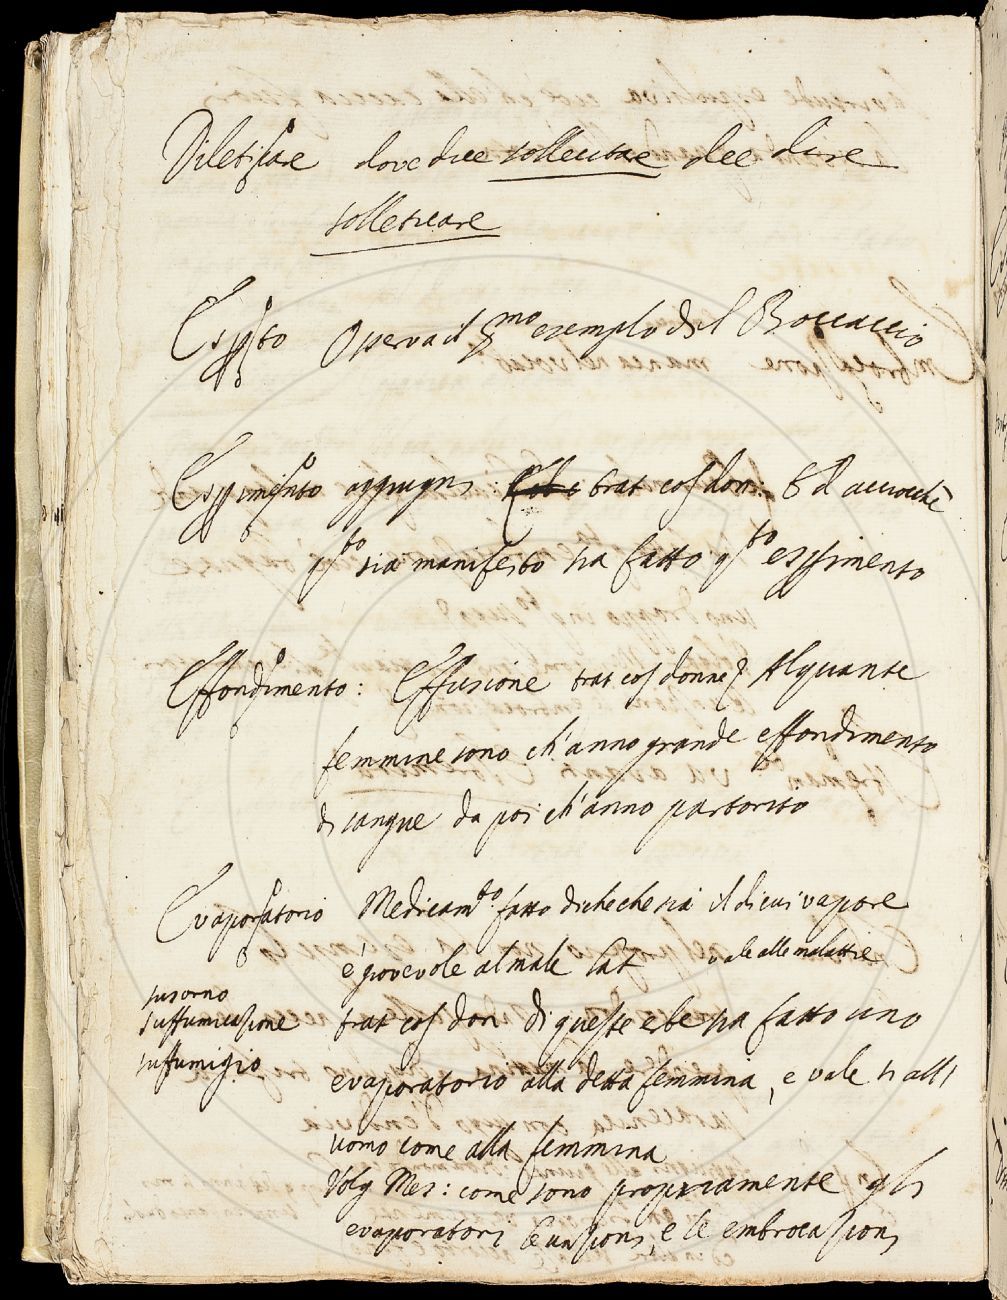 Diletiçare dove dice sollecitare dee dire
solleticare
Osserva il p.mo esemplo del Boccaccio
Esperimento aggiugni: trat cos don: E d acciocchè
q.to sia manifesto sia fatto q.to esperimento
Effondimento: Effusione trat cos donne Alquante
femmine sono ch'anno grande effondimento
di sangue da poi ch'anno partorito
Evaporatorio Medicam.to fatto di chechesia il di cui vapore
è giovevole al male Lat vale alle malattie
suffumicazione
suffumigio
trat cos don di queste erbe sia fatto uno
evaporatorio alla detta femmina, e vale sì all
uomo come alla femmina
Volg Mes: come sono propriamente gli
evaporatori le unzioni, e le embrocazioni